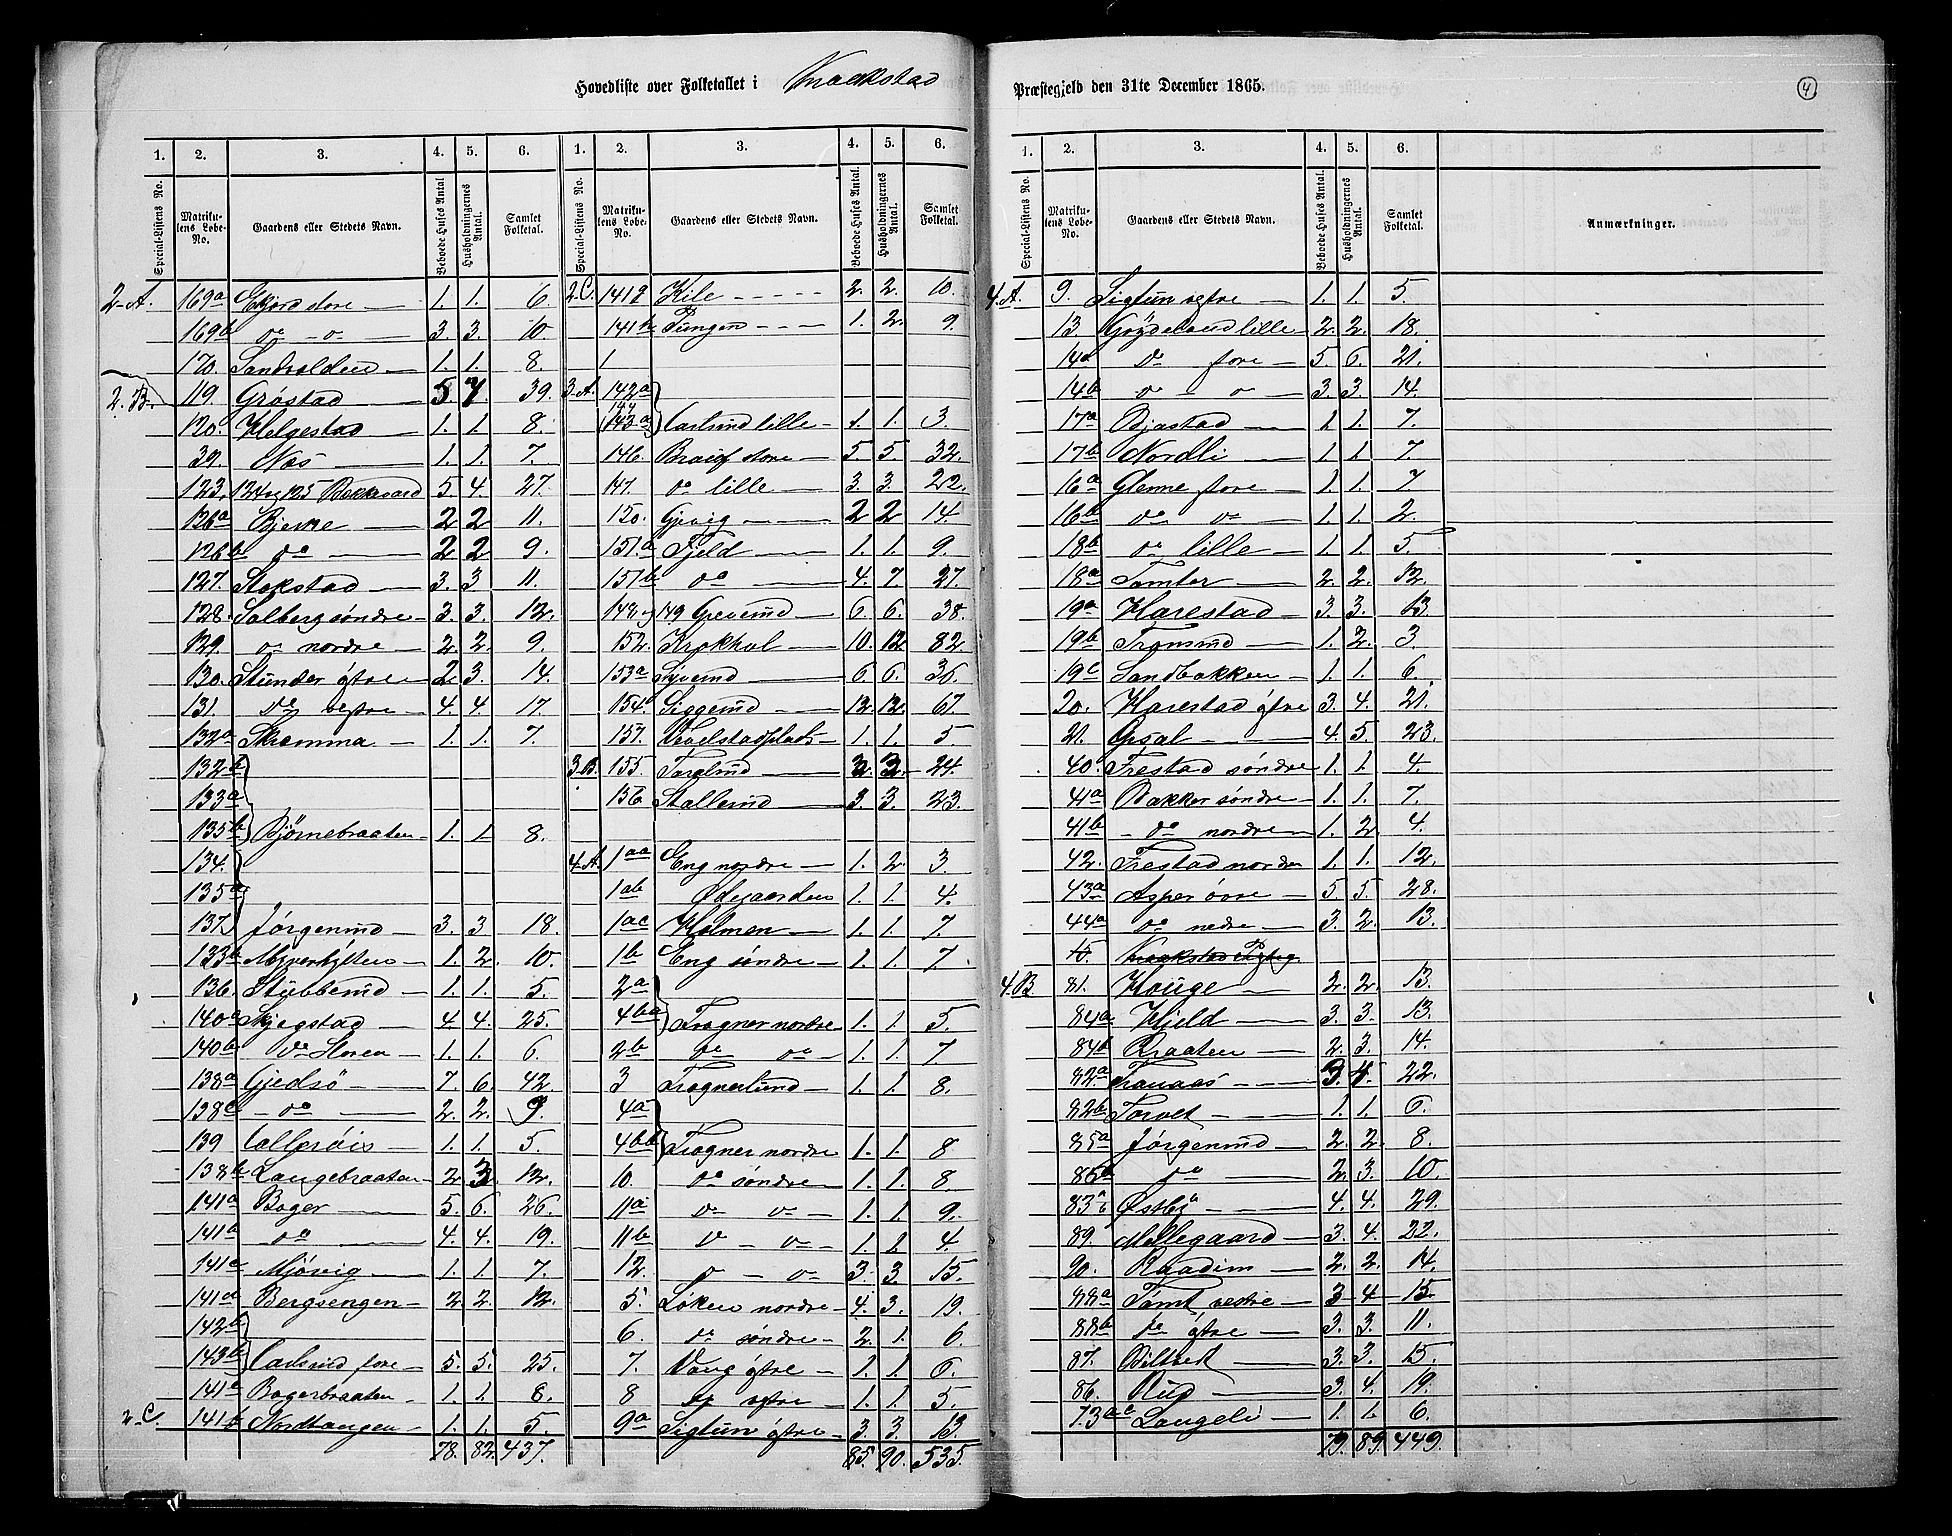 Hovedliste over Folketallet i Kraakstad Præstegjeld den 31te December 1865.
4
1. 2. 3. 4. 5. 6. 1. 2. 3. 4. 5. 6.
Special-Listens No. Matrikulens Løbe-No. Gaardens eller Stedets Navn. Beboede Huses Antal Husholdningernes Antal. Samlet Folketal. Special-Listens No. Matrikulens Løbe-No. Gaardens eller Stedets Navn. Beboede Huses Antal. Husholdningernes Antal. Samlet Folketal.
2-A. 169a store 1. 1. 6
169b do - o - 3. 3. 10.
170. 1. 1. 8.
2.B. 119. Grøstad 5. 7. 39.
120. Helgestad 1. 1. 8.
39. Næs 1. 1. 7.
123, 124 og 125 Bakkegaard 5. 4. 27.
126a Bjerke 2 2 11.
126b do 2 2 9.
127. Stokstad 3. 3 11.
128. Solberg søndre 3. 3. 12.
129. o nordre 2. 2. 9.
130. Stunder østre 2. 3. 14.
131. do vestre 4. 4. 17
132a Skramma 1. 1. 7.
132b
133a
135b Bjørnebraaten 1. 1 8.
134.
135a
137. Jørgenrud 3. 3 18.
133b 1. 2. 10.
136. Stubberud 1. 1. 5.
140a Skjegstad 4. 4. 25.
140b do Moren 1. 1. 6.
138a Gjedsø 7. 6. 42.
138c - do 2. 2. 9.
139 1. 1. 5.
138b Langebraaten 2. 3. 12.
141a Boger 5. 6. 26.
141b do 4. 4. 19.
141c Mjøvig 1. 1. 7.
141d Bergsengen 2. 2. 12.
142b
143b Carlsrud store 5. 5. 25.
141a Bogerbraaten 1. 1. 8.
2-C. 141b Nordbangen 1. 1. 5.
78. 82. 437.
2.C. 141g Kile 2. 2. 10.
141h Tangen 1. 2. 9.
1
3-A. 142a
144
143a Carlsrud lille 1. 1. 3.
146. store 5. 5. 32.
147. do lille 3. 3. 22.
150. Gjevig 2 2 14.
151a Fjeld 1. 1. 9.
151b do 4. 7. 27.
148 og 149 Greverud 6. 6. 38.
152. Krokhol 10. 12. 82
153a 6. 6. 36.
154. Siggerud 12. 12. 67.
157. Vevelstadplads 1. 1. 5
3.B. 155. 3. 3. 24.
156. Stallerud 3. 3. 23.
4.A. 1aa Eng nordre 1. 2. 3.
1ab Ødegaarden 1. 1. 4.
1ac Holmen 1. 1. 7
1b Eng søndre 1. 1. 7.
2a
4ba Frogner nordre 1. 1. 5.
2b do do 1. 1. 7
3 Frognerlund 1. 1. 8.
4a
4bb Frogner nordre 1. 1. 8
10. do søndre 1. 1. 8.
11a do do 1. 1. 9.
11b do - o - 1. 1. 4.
12. o - o 3. 3. 15.
5. Løken nordre 4. 3. 19.
6. do søndre 2. 1. 6.
7. Vang østre 1. 1. 6.
8 do vestre 1. 1. 5.
9a Sigtun østre 3. 3. 13.
85. 90. 535.
1. 2. 3. 4. 5. 6.
Special-Listens No. Matrikulens Løbe-No. Gaardens eller Stedets Navn. Beboede Huses Antal. Husholdningernes Antal. Samlet Folketal. Anmærkninger.
4.A. 9. Sigtun vestre 1. 1. 5.
13. lille 2. 2. 18.
14a do store 5. 6. 21.
14b o o 3. 3. 14.
17a Bjastad 1 1. 7.
17b Nordli 1. 1. 7
16a Glenne store 1. 1. 7
16b do do 1. 1. 2.
18b do lille 1. 1. 5.
18a Tomter 2. 2. 12.
19a Harestad 3. 3. 13.
19b 1. 2. 3.
19c Sandbakken 1. 1. 6.
20. Harestad østre 3. 4. 21.
21. Opsal 4. 5. 23.
40. Frestad søndre 1. 1. 4.
41a Bakker søndre 1. 1. 7.
41b do nordre 1. 2. 4.
42. Frestad nordre 1. 1. 12.
43a Asper øvre 5. 5. 28.
44a do nedre 3. 2. 13.
15. Kraakstad Prstg.
4.B 81. Houge 2. 2. 13.
84a Kjeld 3. 3. 13.
84b Braaten 2. 3. 14.
82a Tranaas 3. 4. 22.
82b Torvet 1. 1. 6.
85a Jørgenrud 2. 2. 8.
85b do 2. 3. 10.
83ab Østby 4. 4. 29.
89. Mellegaard 3. 4. 22.
90. Raadim 2. 2. 14.
88a Tomt vestre 3 4 15.
88b do østre 3. 3. 11.
87. Biltbek 3. 3. 15.
86. Rud 3. 4. 19.
73ac Langeli 1. 1. 6.
79. 89. 449.